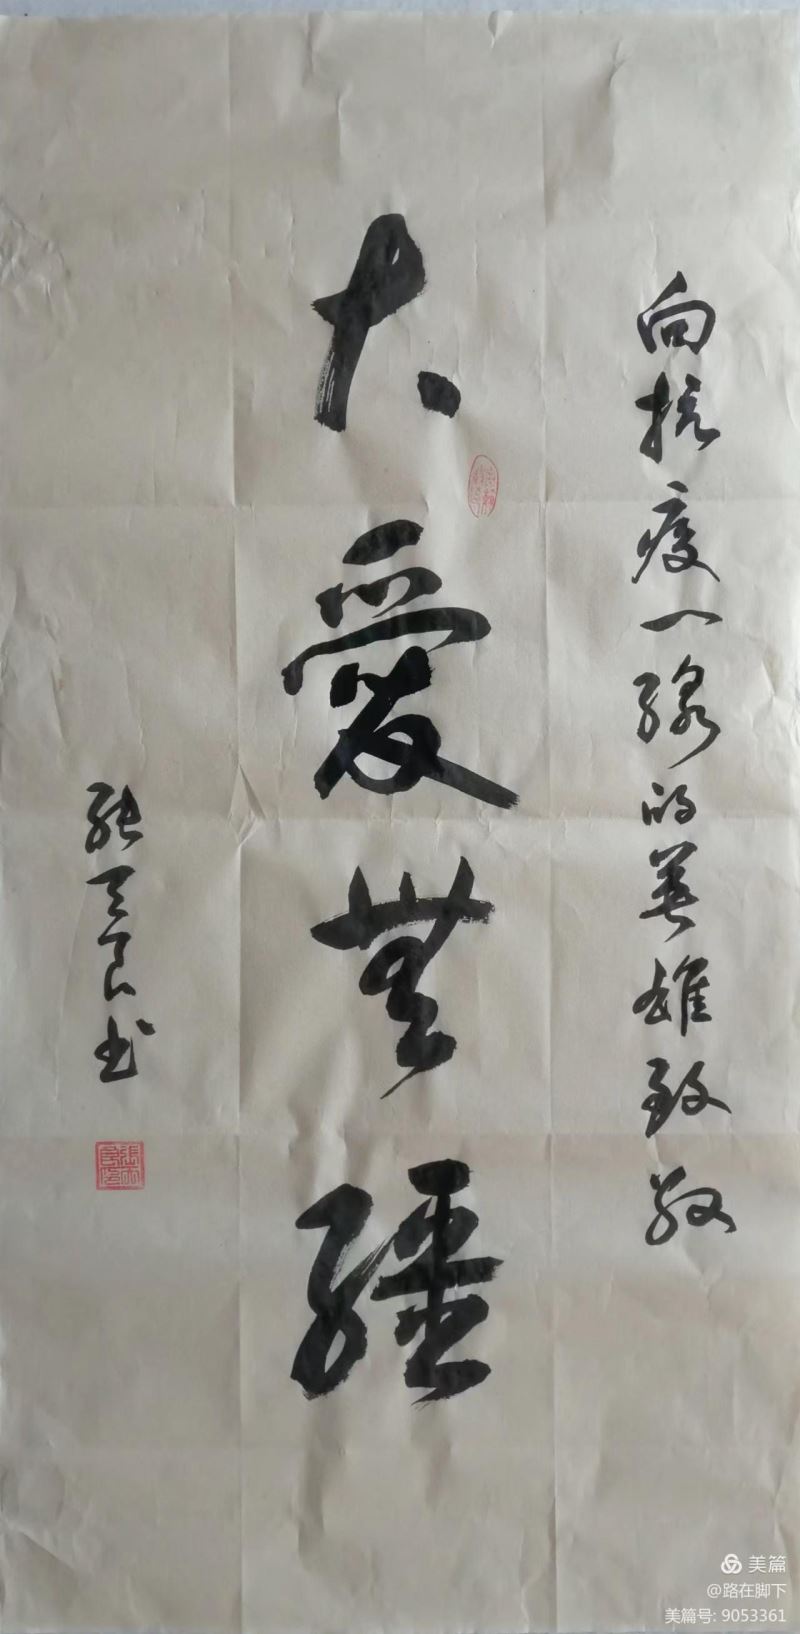 向抗疫一线的英雄致敬
大愛無疆
張天良书
美篇
@路在脚下
美篇号: 9053361